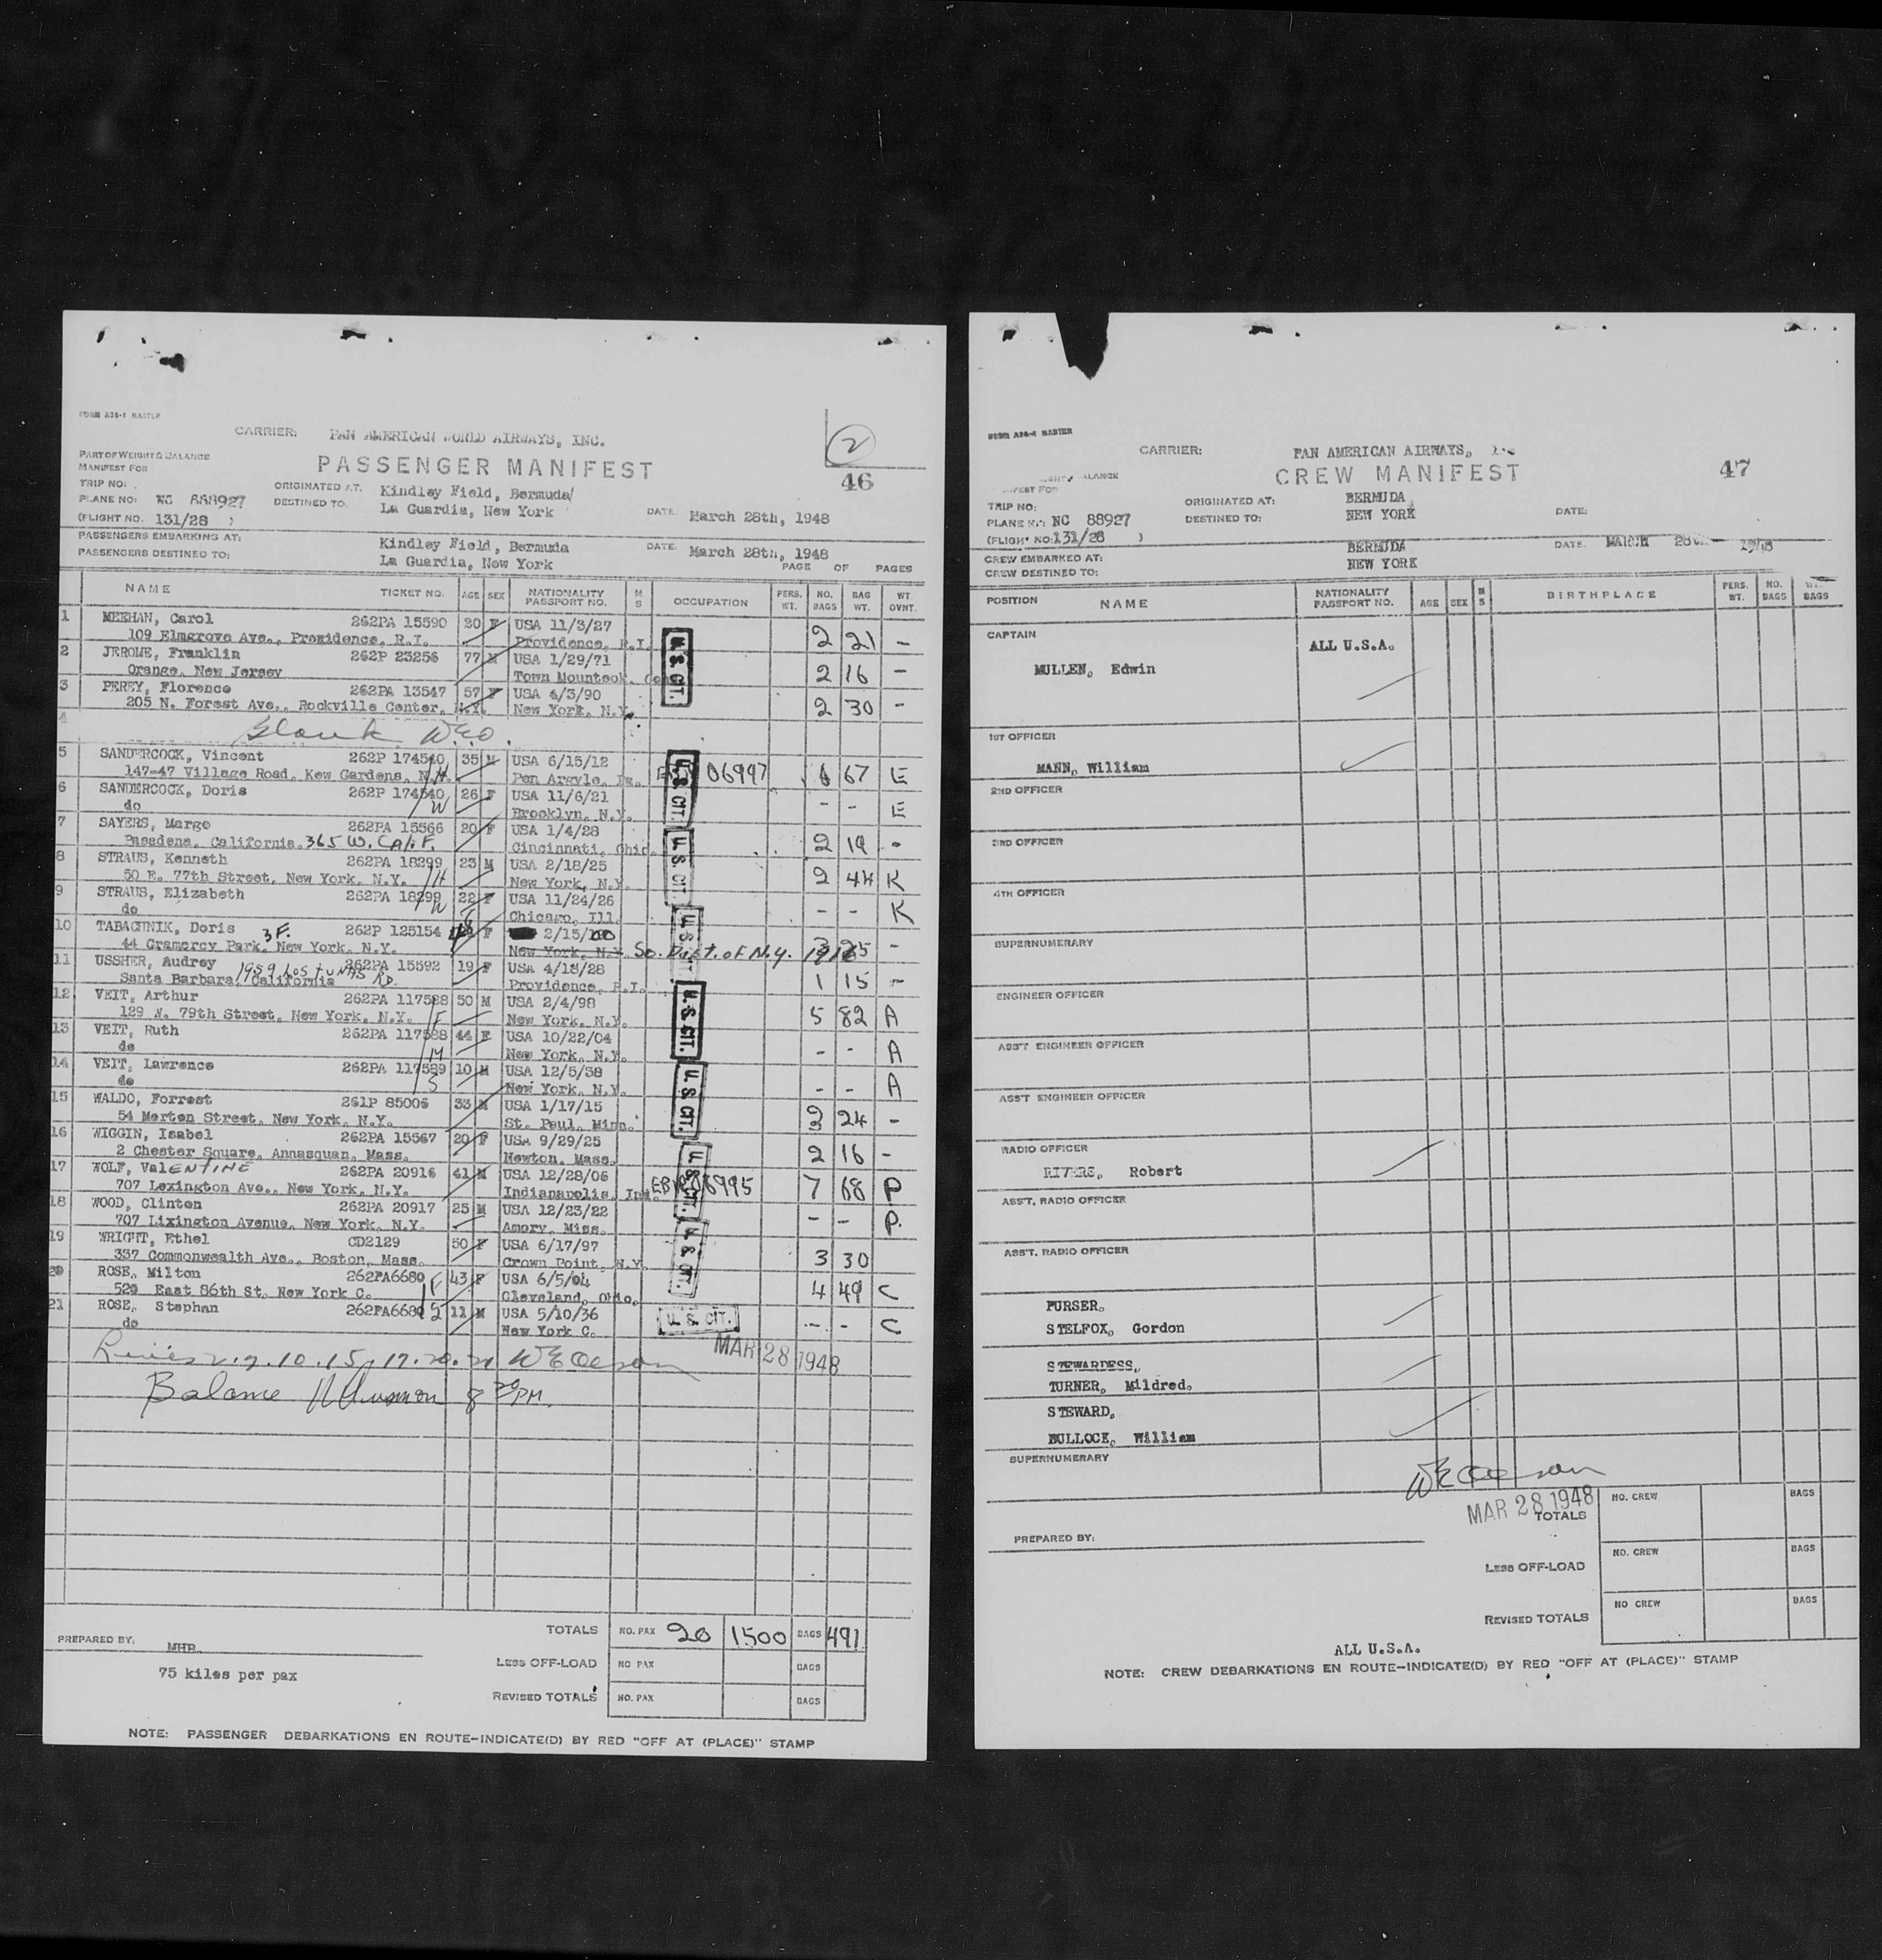 FORM A36-1 MASTER
CARRIER: PAN AMERICAN WORLD AIRWAYS, INC.
2
PART OF WEIGHT & BALANCE
MANIFEST FOR
PASSENGER MANIFEST
46
TRIP NO:
ORIGINATED AT: Kindley Field, Bermuda
PLANE NO: NC 888927
DESTINED TO: La Guardia, New York DATE: March 28th, 1948
(FLIGHT NO. 131/28 )
PASSENGERS EMBARKING AT: Kindley Field, Bermuda DATE: March 28th, 1948
PASSENGERS DESTINED TO: La Guardia, New York PAGE OF PAGES
NAME TICKET NO. AGE SEX NATIONALITY PASSPORT NO. M S OCCUPATION PERS. WT. NO. BAGS BAG WT. WT. OVNT.
1 MEEHAN, Carol 262PA 15590 20 F USA 11/3/27
109 Elmgrove Ave., Providence, R.I. Providence, R.I. 2 21 -
2 JEROME, Franklin 262P 23256 77 M USA 1/29/71
Orange, New Jersey Town Mounteok, 2 16 -
3 PERRY, Florence 262PA 13547 57 F USA 4/3/90
205 N. Forest Ave., Rockville Center, N.Y. New York, N.Y. 2 30 -
U.S. CIT.
4 Blank WEO.
5 SANDERCOCK, Vincent 262P 174540 35 M USA 6/15/12
147-47 Village Road, Kew Gardens, N.Y. H Pen Argyle, Pa. 06997 6 67 E
6 SANDERCOCK, Doris 262P 174540 26 F USA 11/6/21
do W Brooklyn, N.Y. - - E
U.S. CIT.
7 SAYERS, Marge 262PA 15566 20 F USA 1/4/28
Pasadena, California. 365 W. Calif. Cincinnati, Ohio. 2 19 -
8 STRAUS, Kenneth 262PA 18299 23 M USA 2/18/25
50 E. 77th Street, New York, N.Y. H New York, N.Y. 2 44 K
U.S. CIT.
9 STRAUS, Elizabeth 262PA 18299 22 F USA 11/24/26
do W Chicago, Ill. - - K
10 TABACHNIK, Doris 262P 125154 F 2/15/00
44 Gramercy Park, 3F. New York, N.Y. New York, N.Y. So. Dist. of N.Y. 25 -
11 USSHER, Audrey 262PA 15592 19 F USA 4/18/28
Santa Barbara, California Providence, R.I. 1 15 -
12 VEIT, Arthur 262PA 117588 50 M USA 2/4/98
129 W. 79th Street, New York, N.Y. F New York, N.Y. 5 82 A
13 VEIT, Ruth 262PA 117588 44 F USA 10/22/04
do M New York, N.Y. - - A
U.S. CIT.
14 VEIT, Lawrence 262PA 117589 10 M USA 12/5/38
do S New York, N.Y. - - A
15 WALDO, Forrest 261P 85006 33 M USA 1/17/15
54 Morton Street, New York, N.Y. St. Paul, Minn. 2 24 -
U.S. CIT.
16 WIGGIN, Isabel 262PA 15567 20 F USA 9/29/25
2 Chester Square, Annasquan, Mass. Newton, Mass. 2 16 -
17 WOLF, Valentine 262PA 20916 41 M USA 12/28/06
707 Lexington Ave., New York, N.Y. Indianapolis, Ind. 7 68 P
18 WOOD, Clinton 262PA 20917 25 M USA 12/23/22
707 Lixington Avenue, New York, N.Y. Amory, Miss. - - P.
19 WRIGHT, Ethel CD2129 50 F USA 6/17/97
337 Commonwealth Ave., Boston, Mass. Crown Point, N.Y. 3 30
U.S. CIT.
20 ROSE, Milton 262PA6680 F 43 F USA 6/5/04
529 East 86th St, New York C. Cleveland, Ohio, 4 49 C
21 ROSE, Stephan 262PA6680 S 11 M USA 5/10/36
do New York C. U. S. CIT. - - C
MAR 28 1948
Balance 8 30 PM.
TOTALS NO. PAX 20 1500 BAGS 491
PREPARED BY: MHB.
LESS OFF-LOAD NO PAX BAGS
75 kilos per pax
REVISED TOTALS NO. PAX BAGS
NOTE: PASSENGER DEBARKATIONS EN ROUTE-INDICATE(D) BY RED "OFF AT (PLACE)" STAMP
FORM A36-4 MASTER
CARRIER: PAN AMERICAN AIRWAYS,
CREW MANIFEST
47
TRIP NO:
ORIGINATED AT: BERMUDA
PLANE NO: NC 88927
DESTINED TO: NEW YORK DATE:
(FLIGHT NO: 131/28 )
CREW EMBARKED AT: BERMUDA DATE: MARCH 28th 1948
CREW DESTINED TO: NEW YORK
POSITION NAME NATIONALITY PASSPORT NO. AGE SEX M S BIRTHPLACE PERS. WT. NO. BAGS WT. BAGS
CAPTAIN ALL U.S.A.
MULLEN, Edwin
1ST OFFICER
MANN, William
2ND OFFICER
3RD OFFICER
4TH OFFICER
SUPERNUMERARY
ENGINEER OFFICER
ASS'T ENGINEER OFFICER
ASS'T ENGINEER OFFICER
RADIO OFFICER
RIVERS, Robert
ASS'T. RADIO OFFICER
ASS'T. RADIO OFFICER
PURSER,
STELFOX, Gordon
STEWARDESS,
TURNER, Mildred.
STEWARD,
BULLOCK, William
SUPERNUMERARY
MAR 28 1948
TOTALS NO. CREW BAGS
PREPARED BY:
LESS OFF-LOAD NO. CREW BAGS
REVISED TOTALS NO CREW BAGS
ALL U.S.A.
NOTE: CREW DEBARKATIONS EN ROUTE-INDICATE(D) BY RED "OFF AT (PLACE)" STAMP